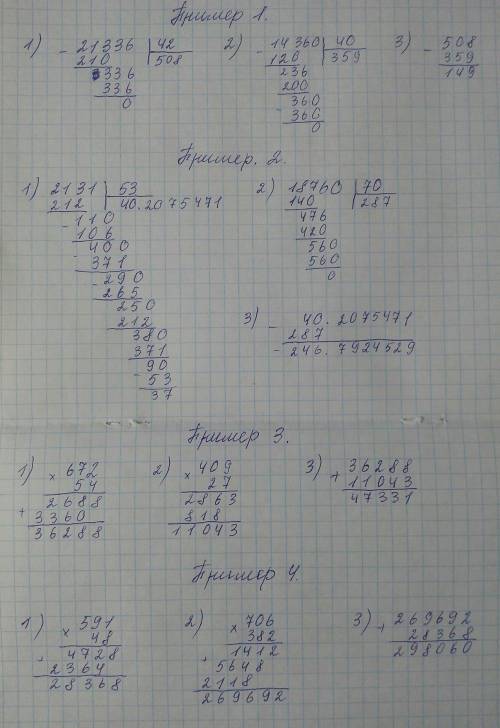 Пример 1.
1) - 21336 | 42 2) - 14360 | 40 3) - 508
210 | 508 120 | 359 359
336 236 149
336 200
0 360
- 360
0
Пример. 2.
1) 2131 | 53 2) 18760 | 70
212 | 40.2075471 140 | 287
- 110 476
106 420
400 560
- 371 560
- 290 0
265
250
212 3) - 40.2075471
380 287
371 - 246.7924529
90
- 53
37
Пример 3.
1) × 672 2) × 409 3) + 36288
54 27 11043
2688 2863 47331
+ 3360 818
36288 11043
Пример 4.
1) × 591 2) × 706 3) + 269692
48 382 28368
+ 4728 1412 298060
2364 + 5648
28368 2118
269692